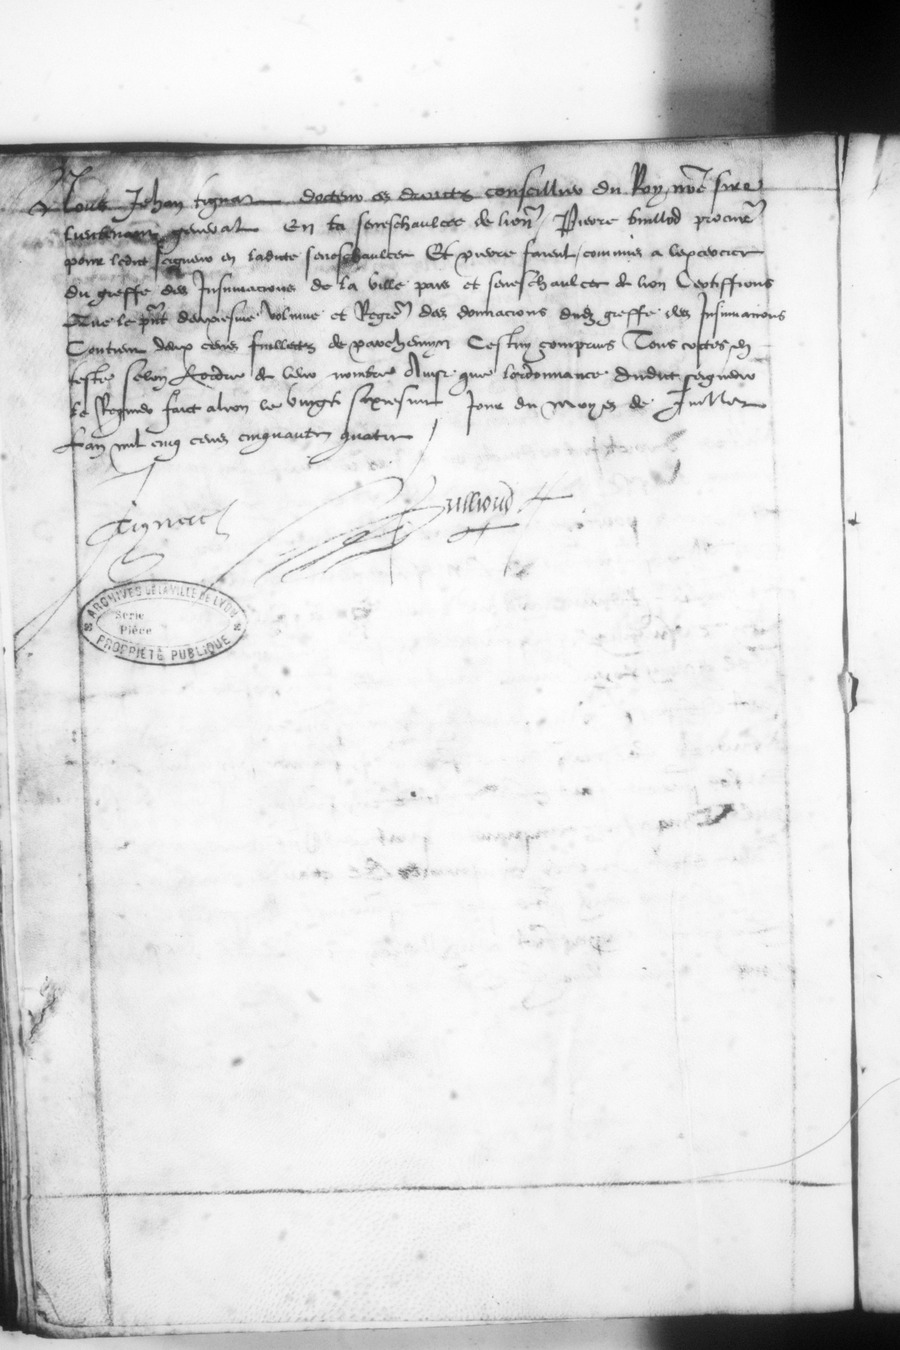 Nous Jehan tignat docteur es droictz conseillier du Roy nre sire
Lieutenant general En la seneschaulcee de lion Pierre bulliod procure
pour ledict seigneur en ladicte seneschaulcee Et pierre favent commis a lexercice
du greffe des Insinuacions de la ville pais et seneschaulcee de lion Certiffions
Que le pnt deuxiesme volume et Regre des donnacions dudz greffe des Insinuacions
Contient deux cens fueilletz de parchemyn Cestuy comprins Tous cottes en
teste selon Lordre de leur nombre Ainsi que lordonnance dudict seigneur
le Requiert faict a lion le vingt sixiesme Jour du moys de Juillet
Lan mil cinq cens cinquante quatre
Tignat
Bullioud
ARCHIVES DE LA VILLE DE LYON
Serie
Pièce
PROPRIÉTÉ PUBLIQUE